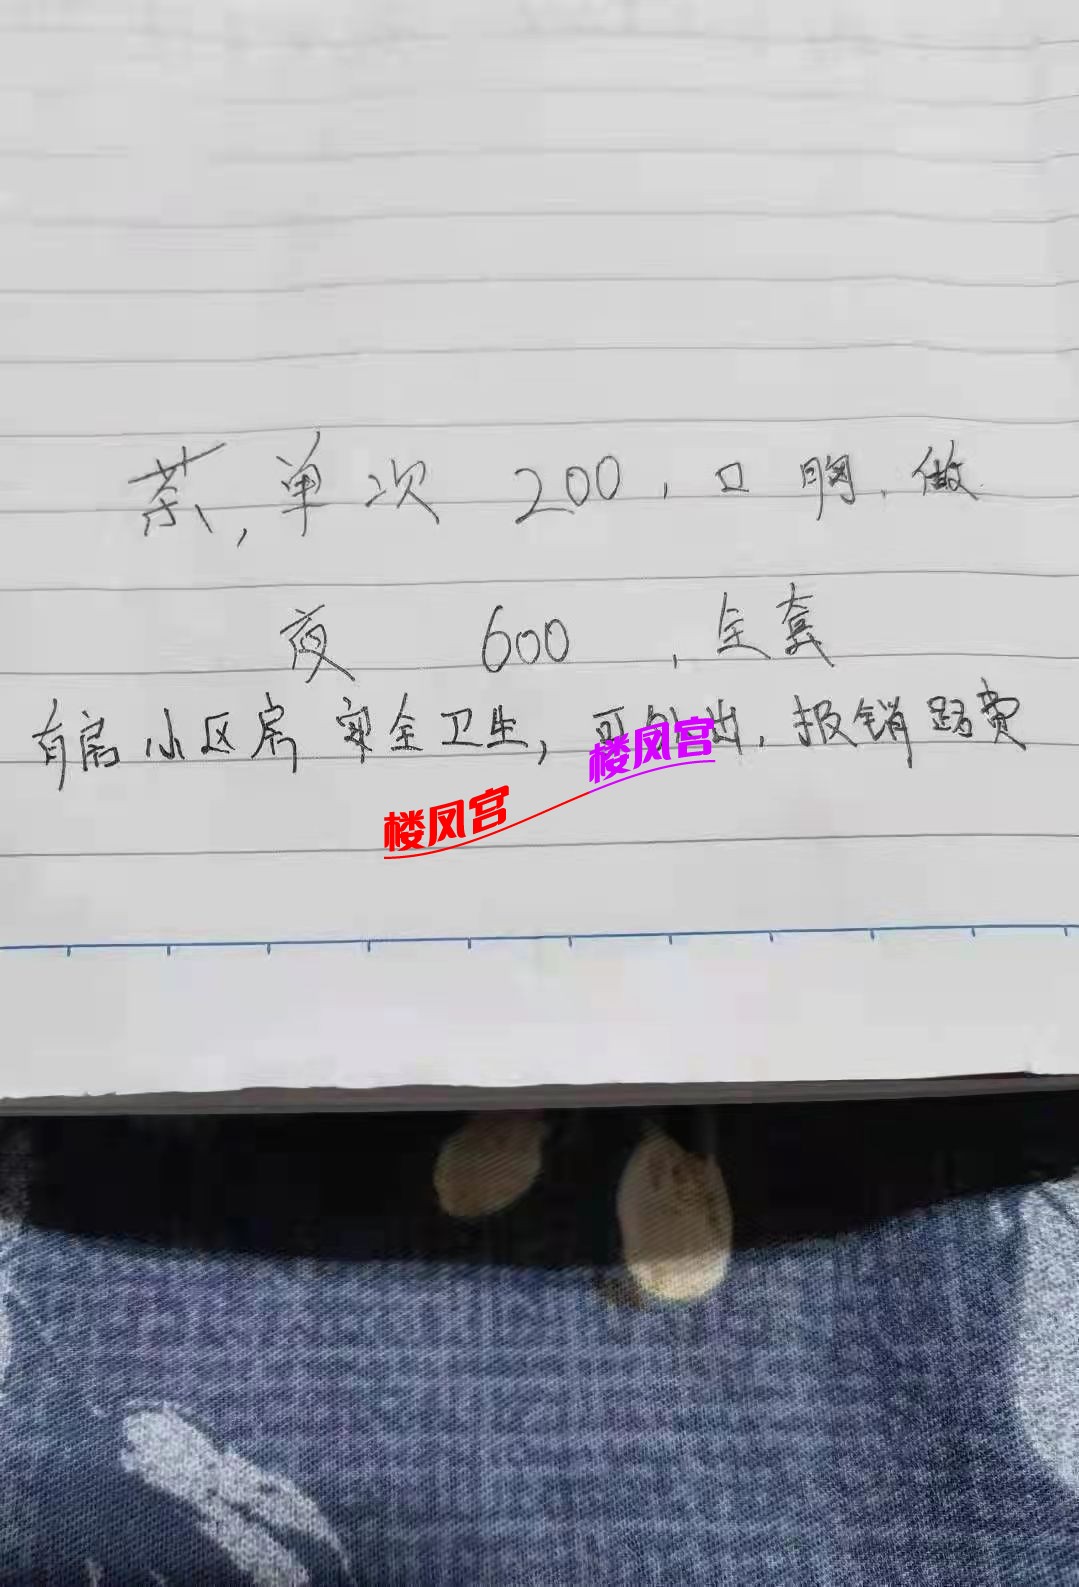 茶,单次 200,口 胸,做
夜 600,全套
有房小区房 安全卫生,可外出,报销路费
楼凤宫
楼凤宫